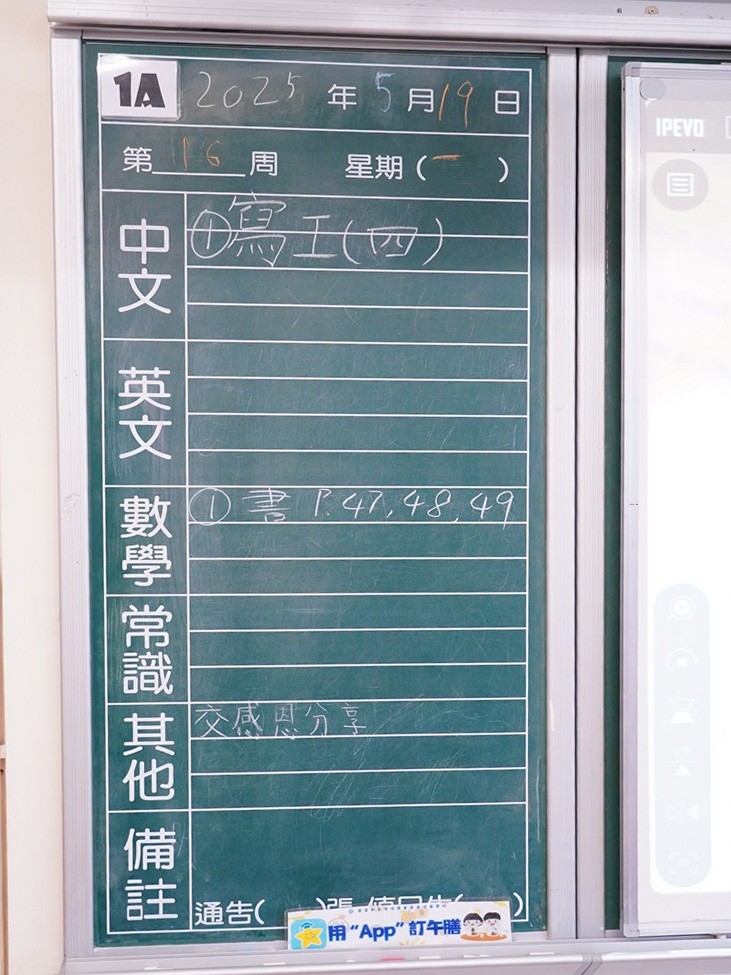 1A 2025 年 5 月 19 日
第 16 周 星期 ( 一 )
中文
①寫工(四)
英文
數學
① 書 P.47, 48, 49
常識
其他
交感恩分享
備註
通告( )張
用 “App” 訂午膳
IPEVO